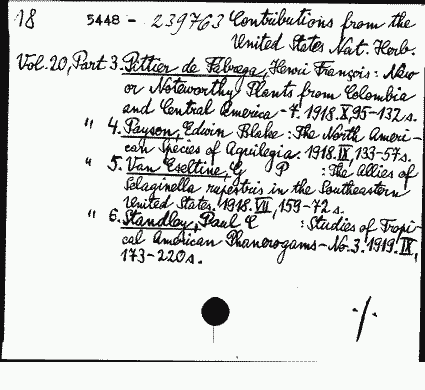 18 5448 - 239763 Contributions from the
United States Nat. Herb.
Vol. 20, Part 3. Pittier de Fabrega, Henri François: New
or Noteworthy Plants from Colombia
and Central America - 7. 1918. X, 95-132 s.
" 4. Payson, Edwin Blake: The North Ameri-
can Species of Aquilegia. 1918. IX, 133-57 s.
" 5. Van Eseltine, G P : The Allies of
Selaginella rupestris in the Southeastern
United States. 1918. VII, 159-72 s.
" 6. Standley, Paul C : Studies of Tropi-
cal American Phanerogams - No. 3. 1919. IX,
173-220 s.
./.